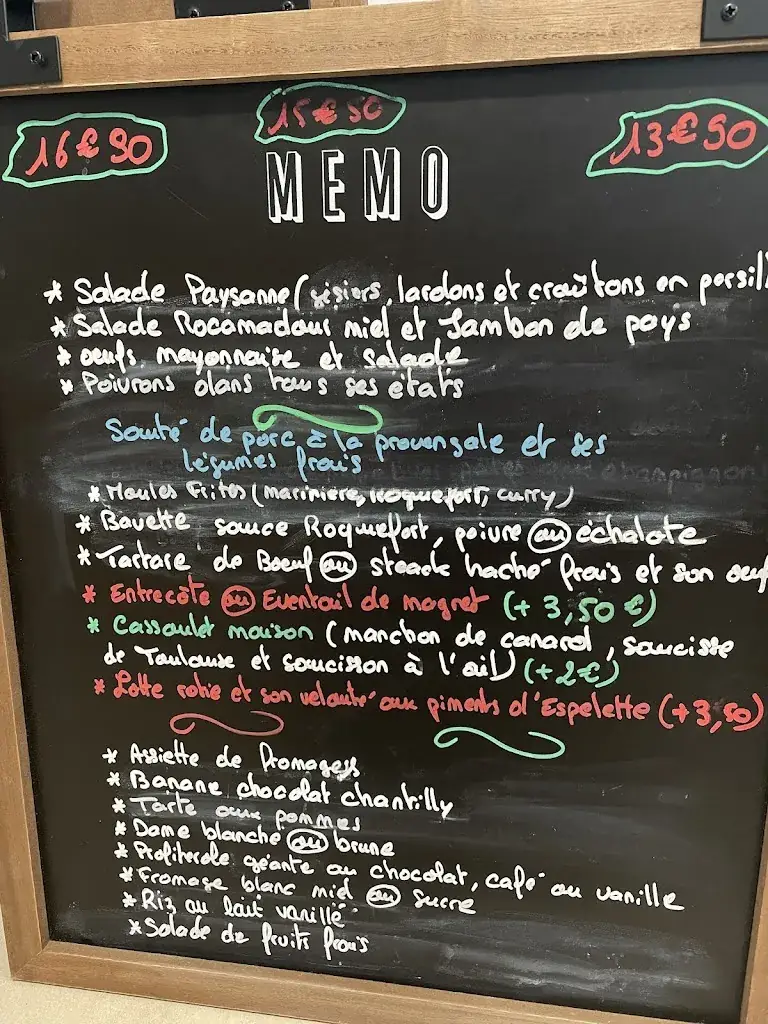 16€90
15€50
13€90
MEMO
* Salade Paysanne (gésiers, lardons et croûtons en persil)
* Salade Rocamadour miel et Jambon de pays
* oeufs mayonnaise et salade
* Poivrons dans tous ses états
Sauté de porc à la provençale et ses
légumes frais
champignon
* Moules Frites (marinière, roquefort, curry)
* Bavette sauce Roquefort, poivre ou échalote
* Tartare de Boeuf ou steack haché frais et son oeuf
* Entrecôte ou Eventail de magret (+ 3,50 €)
* Cassoulet maison (manchon de canard, saucisse
de Toulouse et saucisson à l'ail) (+2€)
* Lotte rotie et son velouté aux piments d'Espelette (+3,50)
* Assiette de fromages
* Banane chocolat chantilly
* Tarte aux pommes
* Dame blanche ou brune
* Profiterole géante au chocolat, café ou vanille
* Fromage blanc miel ou sucre
* Riz au lait vanillé
* Salade de fruits frais